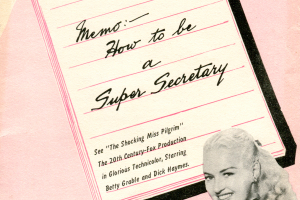 Memo:—
How to be
a
Super Secretary
See "The Shocking Miss Pilgrim"
The 20th Century-Fox Production
in Glorious Technicolor, Starring
Betty Grable and Dick Haymes.